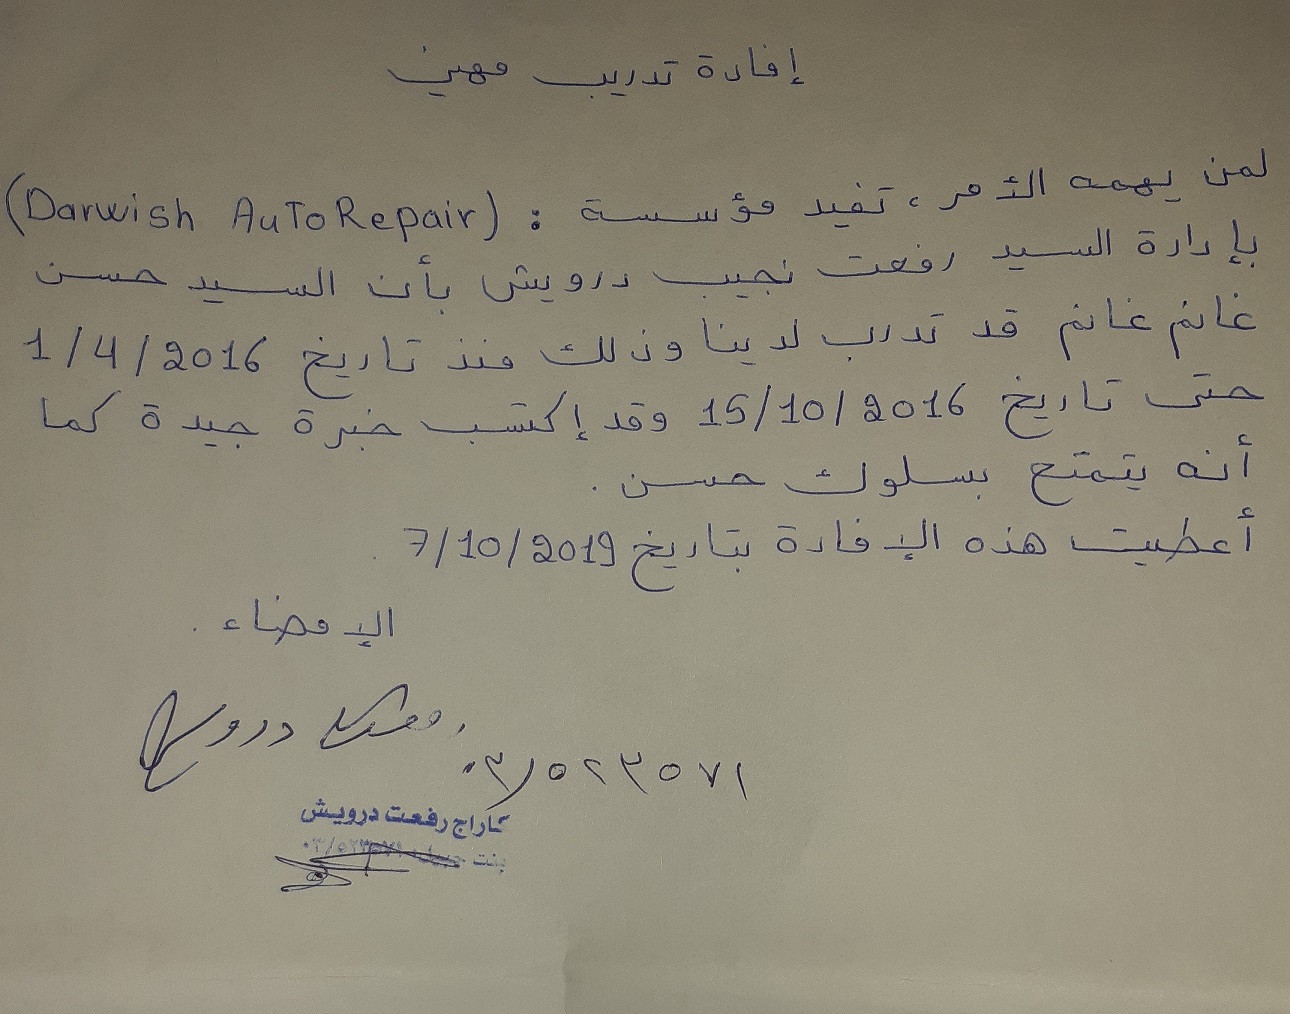 إفادة تدريب مهني
لمن يهمه الأمر، تفيد مؤسسة : (Darwish AuToRepair)
بإدارة السيد رفعت نجيب درويش بأن السيد حسن
غانم غانم قد تدرب لدينا وذلك منذ تاريخ 1/4/2016
حتى تاريخ 15/10/2016 وقد إكتسب خبرة جيدة كما
أنه يتمتع بسلوك حسن .
أعطيت هذه الإفادة بتاريخ 7/10/2019 .
الإمضاء .
رفعت درويش
٠٣/٥٢٣٥٧١
كاراج رفعت درويش
بنت جبيل ٠٣/٥٢٣٥٧١